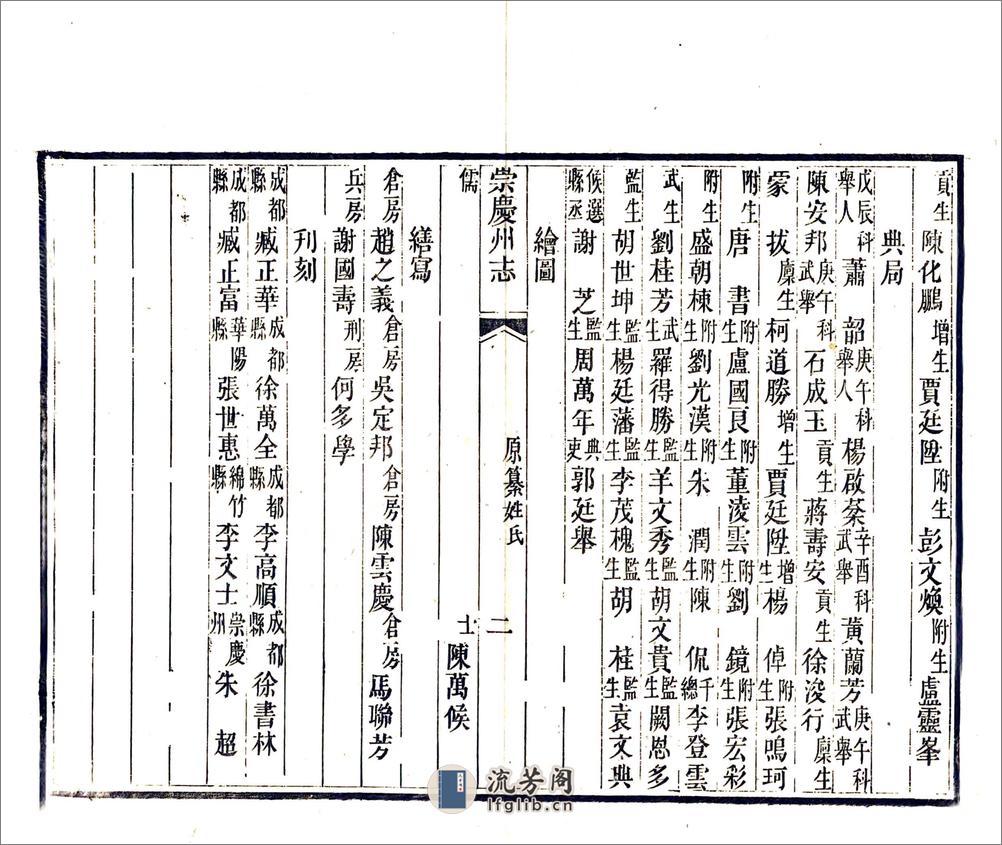 貢生陳化鵬增生賈廷陞附生彭文煥附生盧靈峯
典局
戊辰科舉人蕭韶庚午科舉人楊啟棻辛酉科武舉黃蘭芳庚午科武舉
陳安邦庚午科武舉石成玉貢生蔣壽安貢生徐浚行廩生
蒙拔廩生柯道勝增生賈廷陞增生楊倬附生張鳴珂
附生唐書附生盧國良附生董淩雲附生劉鏡附生張宏彩
附生盛朝棟附生劉光漢附生朱潤附生陳侃千總李登雲
武生劉桂芳武生羅得勝監生羊文秀監生胡文貴監生闕恩多
監生胡世坤監生楊廷藩監生李茂槐監生胡桂監生袁文典
候選縣丞謝芝監生周萬年典吏郭廷舉
繪圖
崇慶州志 原纂姓氏 二
儒士陳萬候
繕寫
倉房趙之義倉房吳定邦倉房陳雲慶倉房馬聯芳
兵房謝國壽刑房何多學
刋刻
成都縣臧正華成都縣徐萬全成都縣李高順成都縣徐書林
成都縣臧正富華陽縣張世惠綿竹縣李文士崇慶州朱超
流芳阁
lfglib.cn